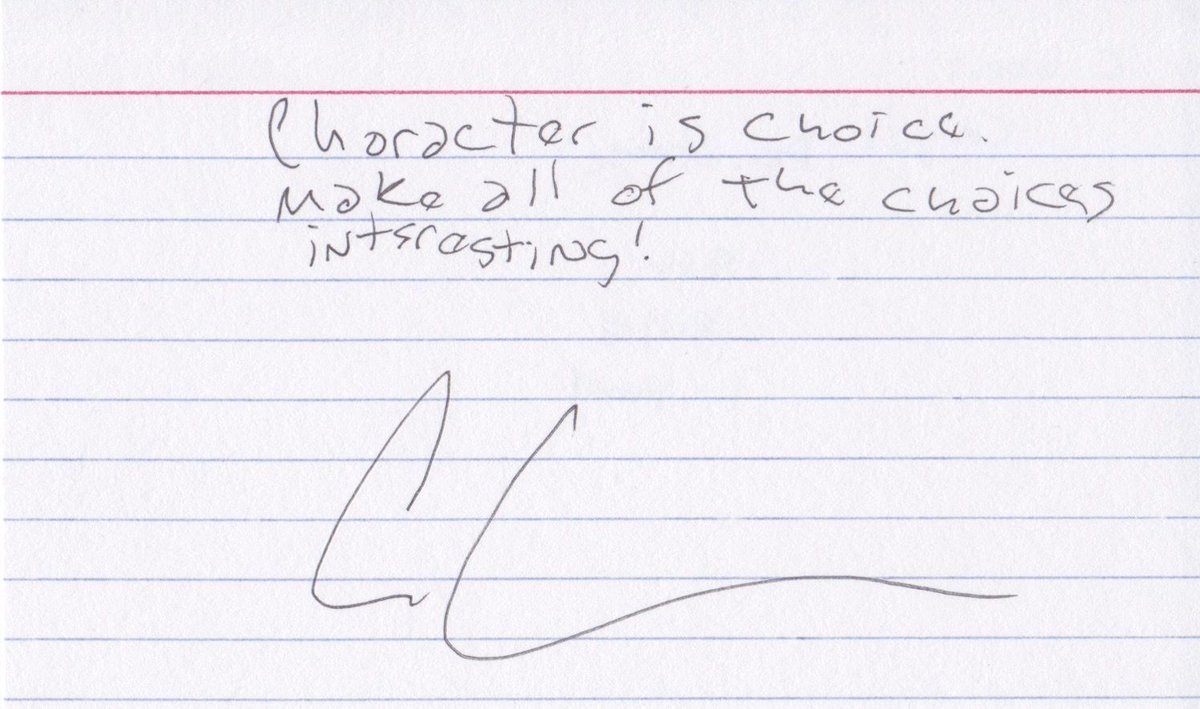 Character is choice.
Make all of the choices
interesting!